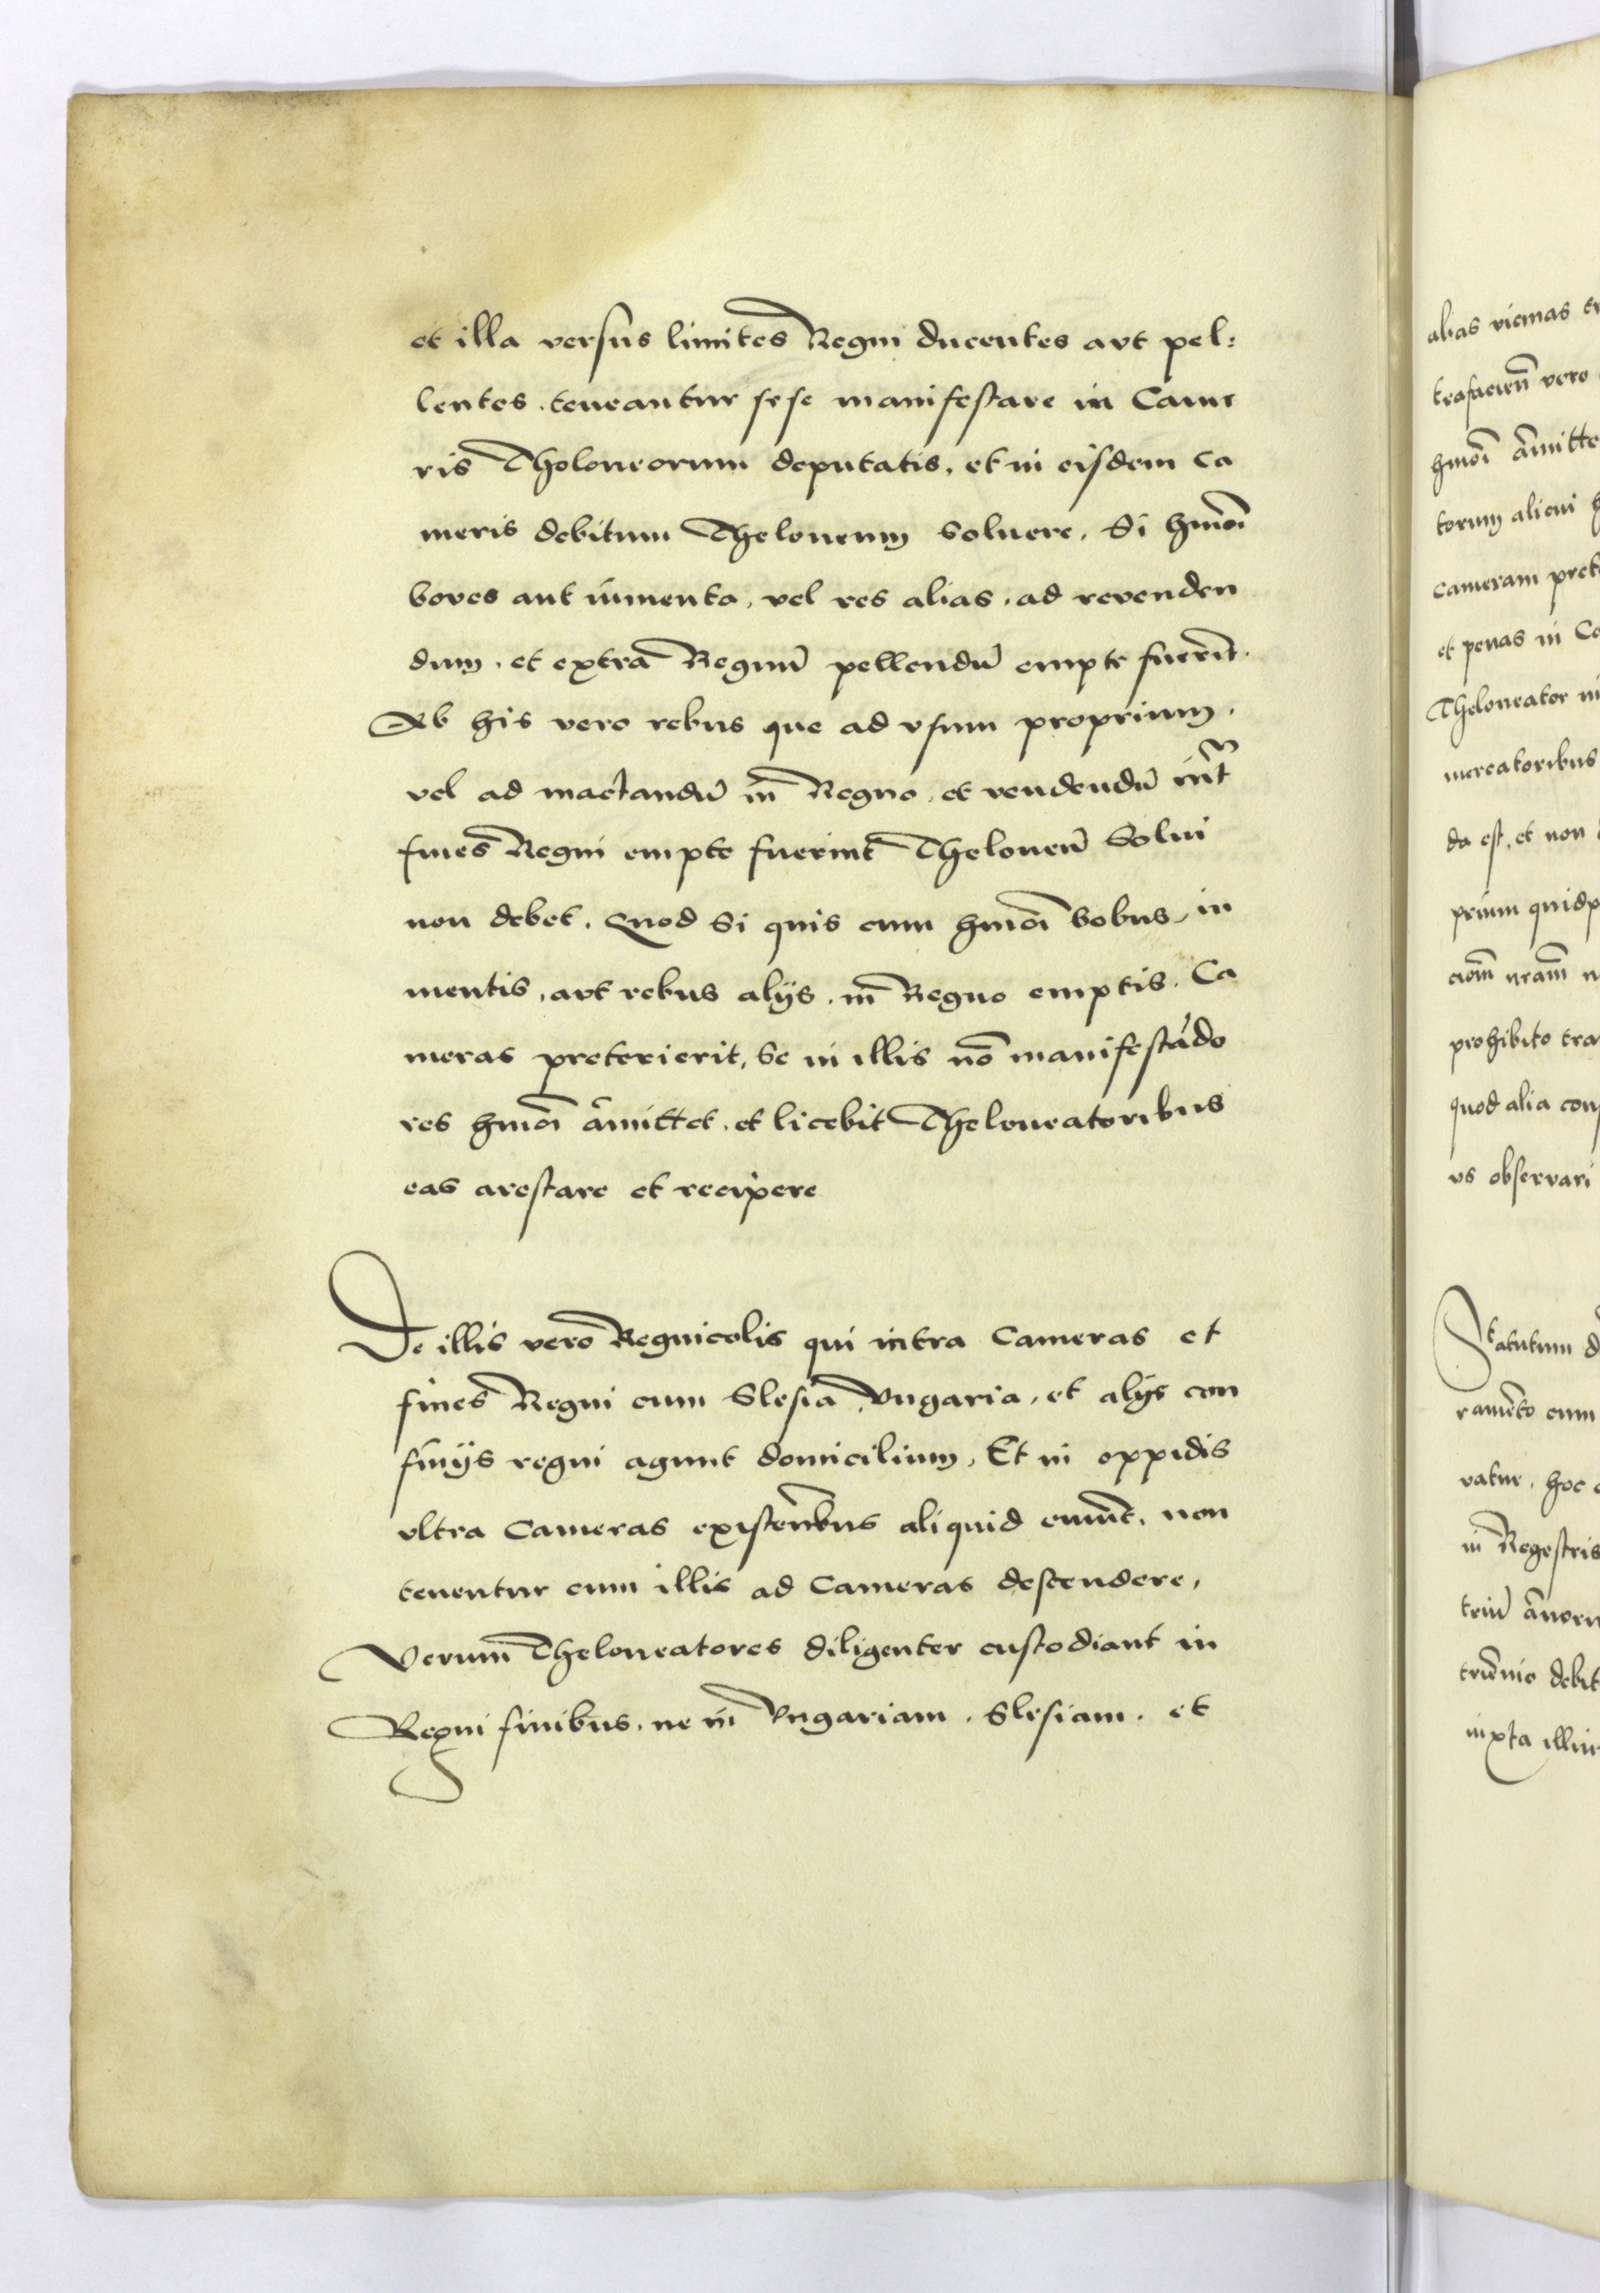 et illa versus limites Regni ducentes aut pel:
lentes. teneantur sese manifestare in Came
ris Tholoneorum deputatis, et in eisdem ca
meris debitum Theloneum soluere. Si hmoi
boves aut iumenta, vel res alias, ad revenden
dum, et extra Regnū pellendū empte fuerīt.
Ab his vero rebus que ad vsum proprium.
vel ad mactandū in Regno, et vendendū intr
fines Regni empte fuerint Theloneū Solui
non debet. Quod Si quis cum hmoi bobus, iu
mentis, aut rebus alijs, in Regno emptis, Ca
meras preterierit, Se in illis nō manifestādo
res hmoi āmittet, et licebit Theloneatoribus
eas arestare et recipere
De illis vero Regnicolis qui intra Cameras et
fines Regni cum Slesia, Vngaria, et alijs con
finijs regni agunt domicilium, Et in oppidis
vltra Cameras existentibus aliquid emūt, non
tenentur cum illis ad Cameras descendere,
Verum Theloneatores diligenter custodiant in
Regni finibus, ne in Vngariam, Slesiam, et
alias vicinas
vero
hmoi āmitte
torum alicui
cameram
et penas in
Theloneator
mercatoribus
da est, et non
prium
prohibito
quod alia
vs observari
Statutum
cum
hoc
in Regestris
debit
iuxta